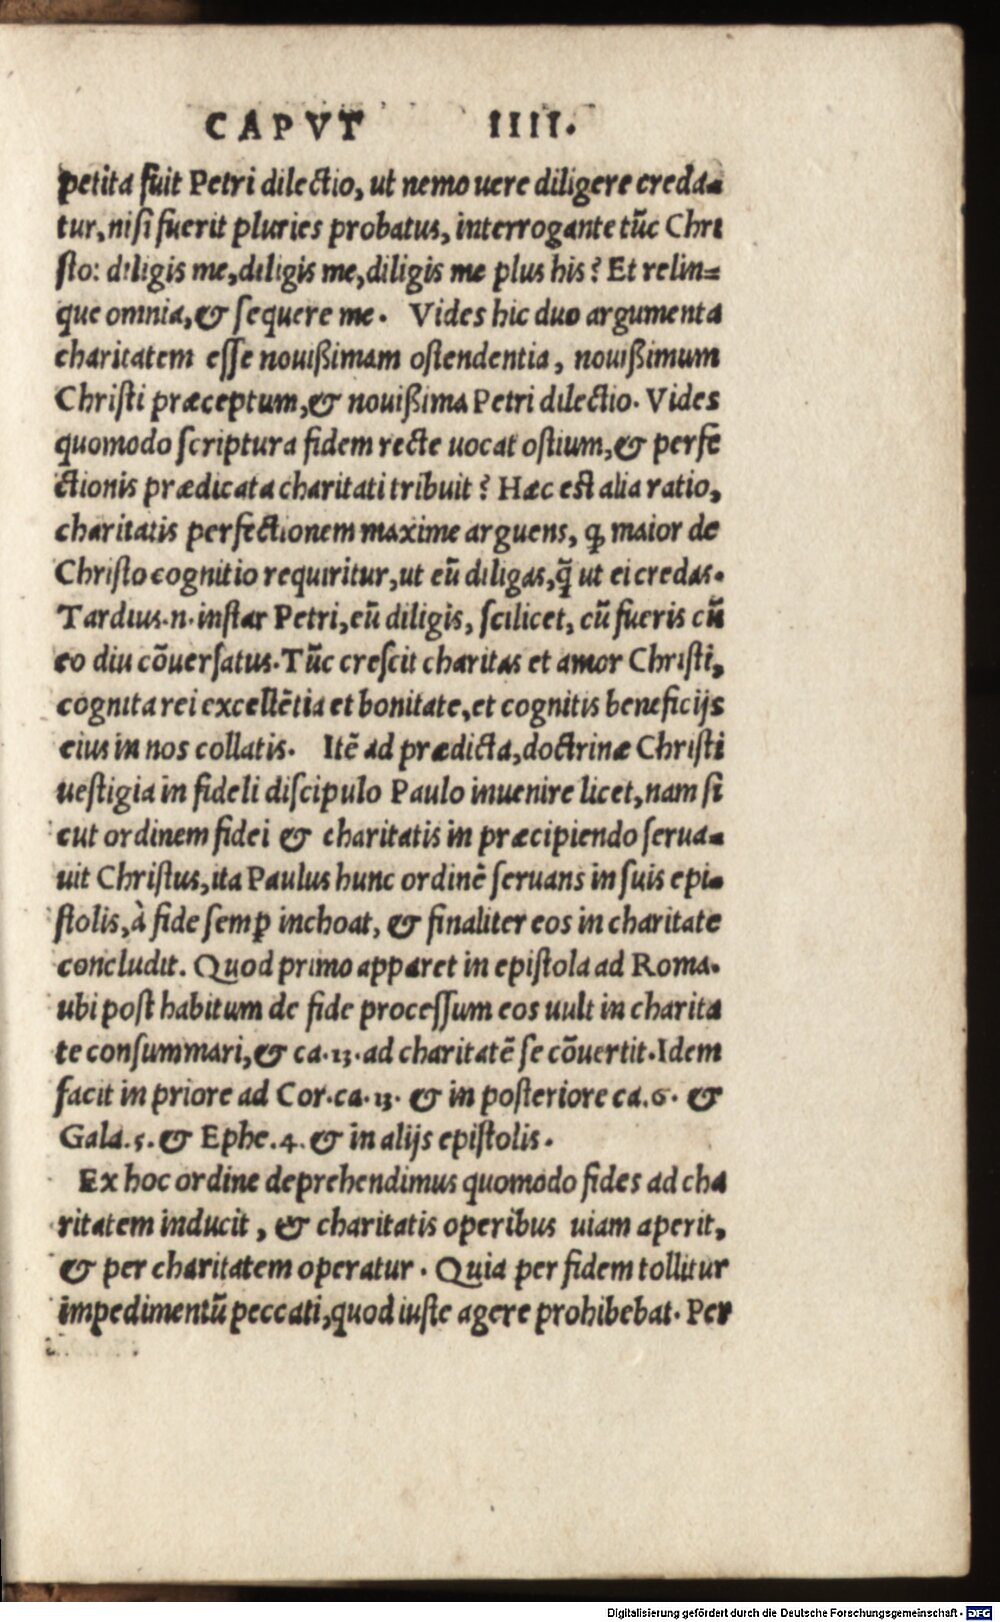 CAPVT IIII.
petita fuit Petri dilectio, ut nemo uere diligere creda-
tur, nisi fuerit pluries probatus, interrogante tūc Chri
sto: diligis me, diligis me, diligis me plus his? Et relin=
que omnia, & sequere me. Vides hic duo argumenta
charitatem esse nouißimam ostendentia, nouißimum
Christi præceptum, & nouißima Petri dilectio. Vides
quomodo scriptura fidem recte uocat ostium, & perfe
ctionis prædicata charitati tribuit? Hæc est alia ratio,
charitatis perfectionem maxime arguens, ꝙ maior de
Christo cognitio requiritur, ut eū diligas, q̃ ut ei credas.
Tardius .n. instar Petri, eū diligis, scilicet, cū fueris cū
eo diu cōuersatus. Tūc crescit charitas et amor Christi,
cognita rei excellētia et bonitate, et cognitis beneficijs
eius in nos collatis. Itē ad prædicta, doctrinæ Christi
uestigia in fideli discipulo Paulo inuenire licet, nam si
cut ordinem fidei & charitatis in præcipiendo serua-
uit Christus, ita Paulus hunc ordinē seruans in suis epi-
stolis, à fide semꝑ inchoat, & finaliter eos in charitate
concludit. Quod primo apparet in epistola ad Roma.
ubi post habitum de fide processum eos uult in charita
te consummari, & ca. 13. ad charitatē se cōuertit. Idem
facit in priore ad Cor. ca. 13. & in posteriore ca. 6. &
Gala. 5. & Ephe. 4. & in alijs epistolis.
Ex hoc ordine deprehendimus quomodo fides ad cha
ritatem inducit, & charitatis operibus uiam aperit,
& per charitatem operatur. Quia per fidem tollitur
impedimentū peccati, quod iuste agere prohibebat. Per
Digitalisierung gefördert durch die Deutsche Forschungsgemeinschaft - DFG